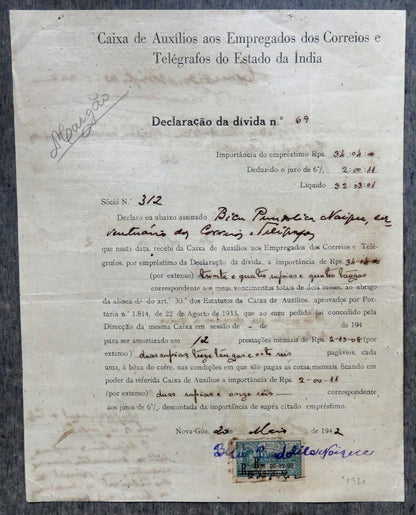 Caixa de Auxílios aos Empregados dos Correios e
Telégrafos do Estado da Índia
Margão
Declaração da dívida n.º 69
Importância do empréstimo Rps. 34:04:00
Deduzido o juro de 6% 2:00:11
Líquido 32:03:01
Sócio N.º 312
Declaro eu abaixo assinado Bicu Naique, es-
dos Correios e Telégrafos
que nesta data, recebi da Caixa de Auxílios aos Empregados dos Correios e Telé-
grafos, por empréstimo da Declaração da dívida, a importância de Rps. 34-04-00
(por extenso) trinta e quatro rupias e quatro tangas
correspondente aos meus vencimentos totais de dois meses, ao abrigo
da alínea d) do art.º 30.º dos Estatutos da Caixa de Auxílios, aprovados por Por-
tária n.º 1.814, de 22 de Agosto de 1933, que ao meu pedido foi concedido pela
Direcção da mesma Caixa em sessão de - de 194
para ser amortizado em 12 prestações mensais de Rps. 2-13-08 (por
extenso) duas rupias treze tangas e oito reis pagáveis, cada
uma, à bôca do cofre, nas condições em que são pagas as cotas mensais, ficando em
poder da referida Caixa de Auxílios a importância de Rps. 2-00-11
(por extenso) duas rupias e onze reis correspondente
aos juros de 6%, descontada da importância do supra citado empréstimo.
Nova-Gôa, 20 de Maio de 1942
Bicu Naique